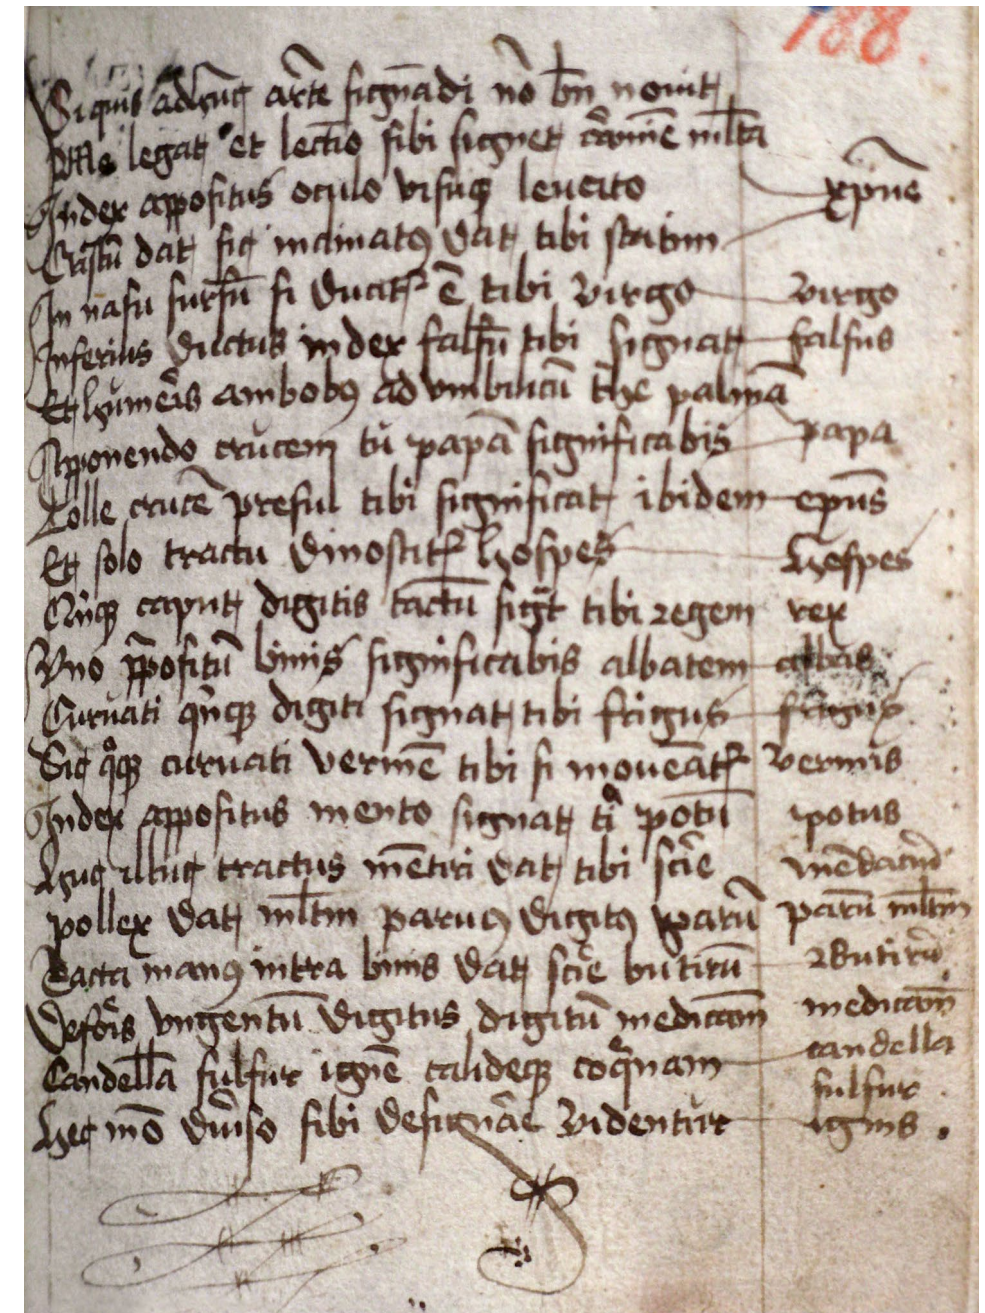 188.
Si quis adhuc artē signādi nō bn̄ nouit
legat et lectio sibi signet cārmīe ml̄ta
Index appositus oculo visuqȝ leuato xp̄us
Cristū dat sic inclinatꝰ dat tibi scriptum
In nasu sursū si ducitr ē tibi virgo virgo
Inferius ductus index falsū tibi signat falsus
Et humeris ambobꝰ ad vmbilicū the palmā
Apponendo crucem tu papā significabis papa
Tolle crucē presul tibi significat ibidem ep̄us
Et solo tractu dinoscitr hospes hospes
Cūqȝ caput digitis tactū sig̅t tibi regem rex
Vno p̄positū binis significabis abbatem abbas
Curuati qn̄qȝ digiti signat tibi frigus frigus
Sic qqȝ curuati vermē tibi si moueātr vermis
Index appositus mento signat ti potū potus
Huc illuc tractus mētiri dat tibi scīe mēdaciū
pollex dat ml̄tm paruꝰ digitꝰ parū parū ml̄tm
Tacta manꝰ intra binis dat scīe butirū Butirū
vngentū digitus digitū medicām medicām
Candella sulfur ignē calideqȝ coqnam candella
sulfur
Hec mō diu̅so sibi designāe videntur ignis .